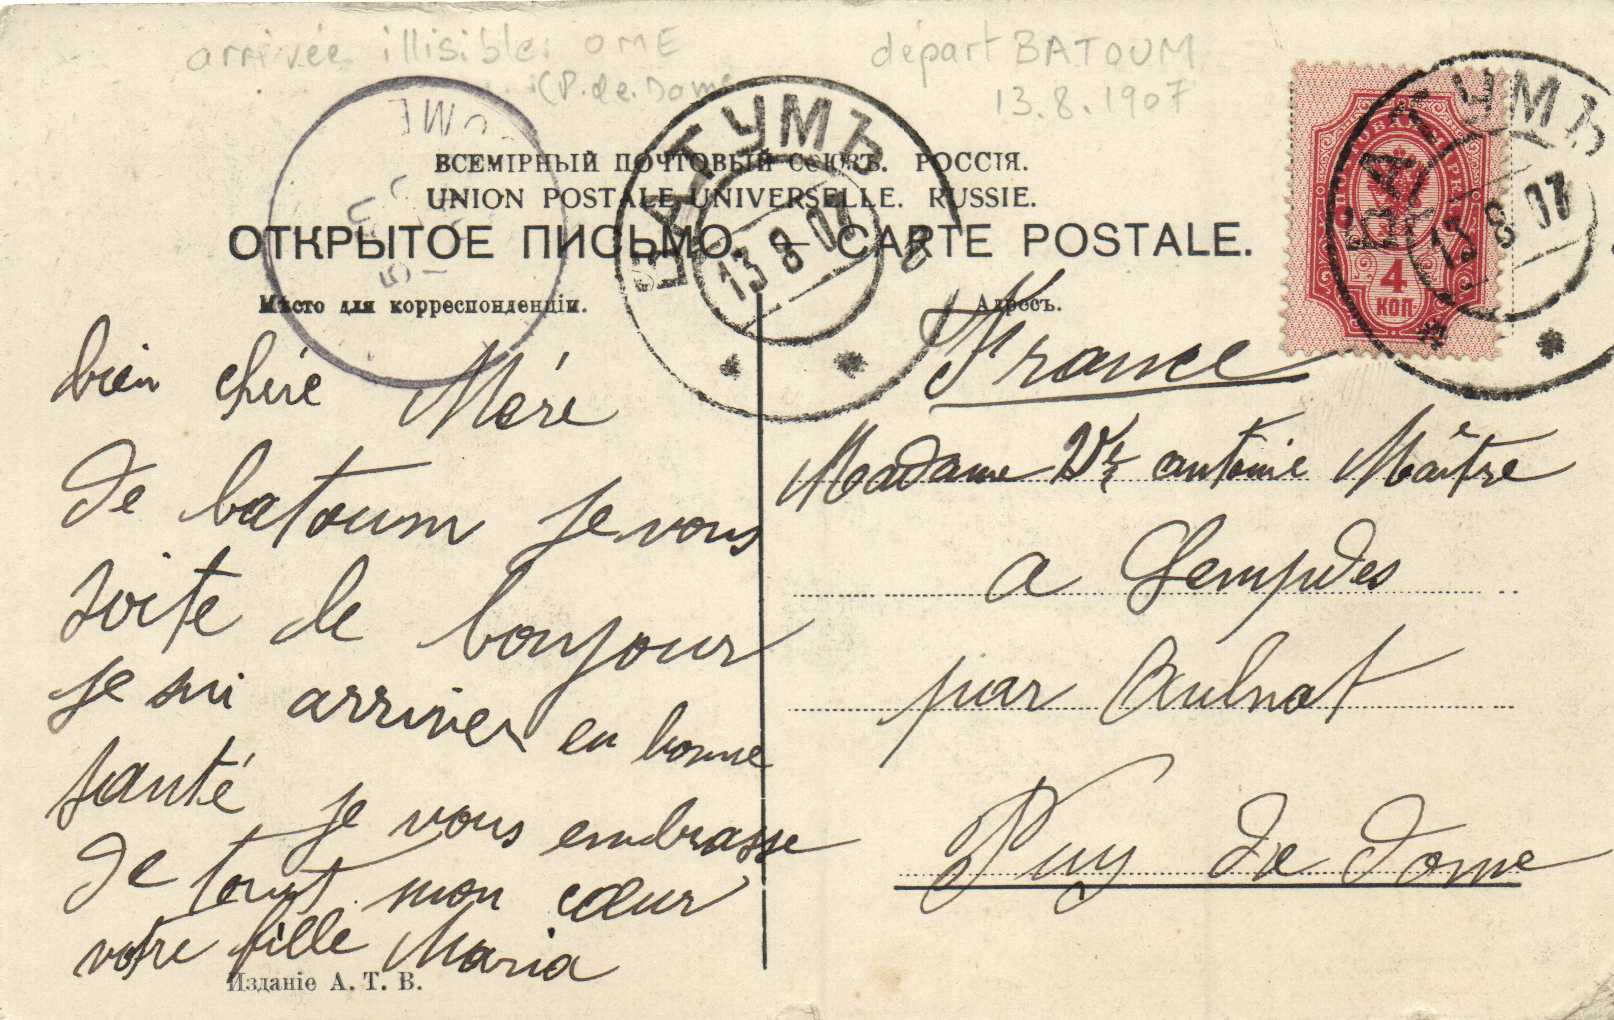 arrivée illisible: OME
(P. de. Dome
départ BATOUM
13.8.1907
ВСЕМІРНЫЙ ПОЧТОВЫЙ СОЮЗЪ. РОССІЯ.
UNION POSTALE UNIVERSELLE. RUSSIE.
ОТКРЫТОЕ ПИСЬМО. — CARTE POSTALE.
БАТУМЪ
13 8 07
БАТУМЪ
13 8 07
4
КОП
OME
Мѣсто для корреспонденціи.
bien chére Mére
de batoum je vous
soite le bonjour
je sui arriver en bonne
santé je vous embrasse
de tout mon cœur
votre fille Maria
Изданіе А. Т. В.
Адресъ.
France
Madame Vve antoine Maître
a Lempdes
par Aulnat
Puy de Dome